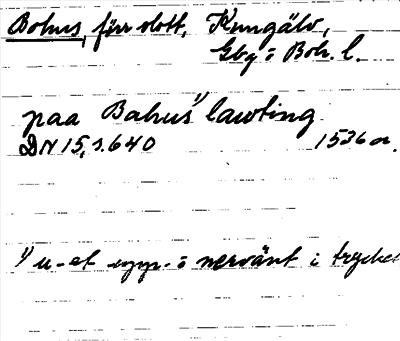 Bohus, förr slott, Kungälv,
Gbg o Boh. l.
paa Bahus¹⁾ lawting
DN 15, s. 640 1536 or.
¹⁾ u-et upp- o nervänt i trycket